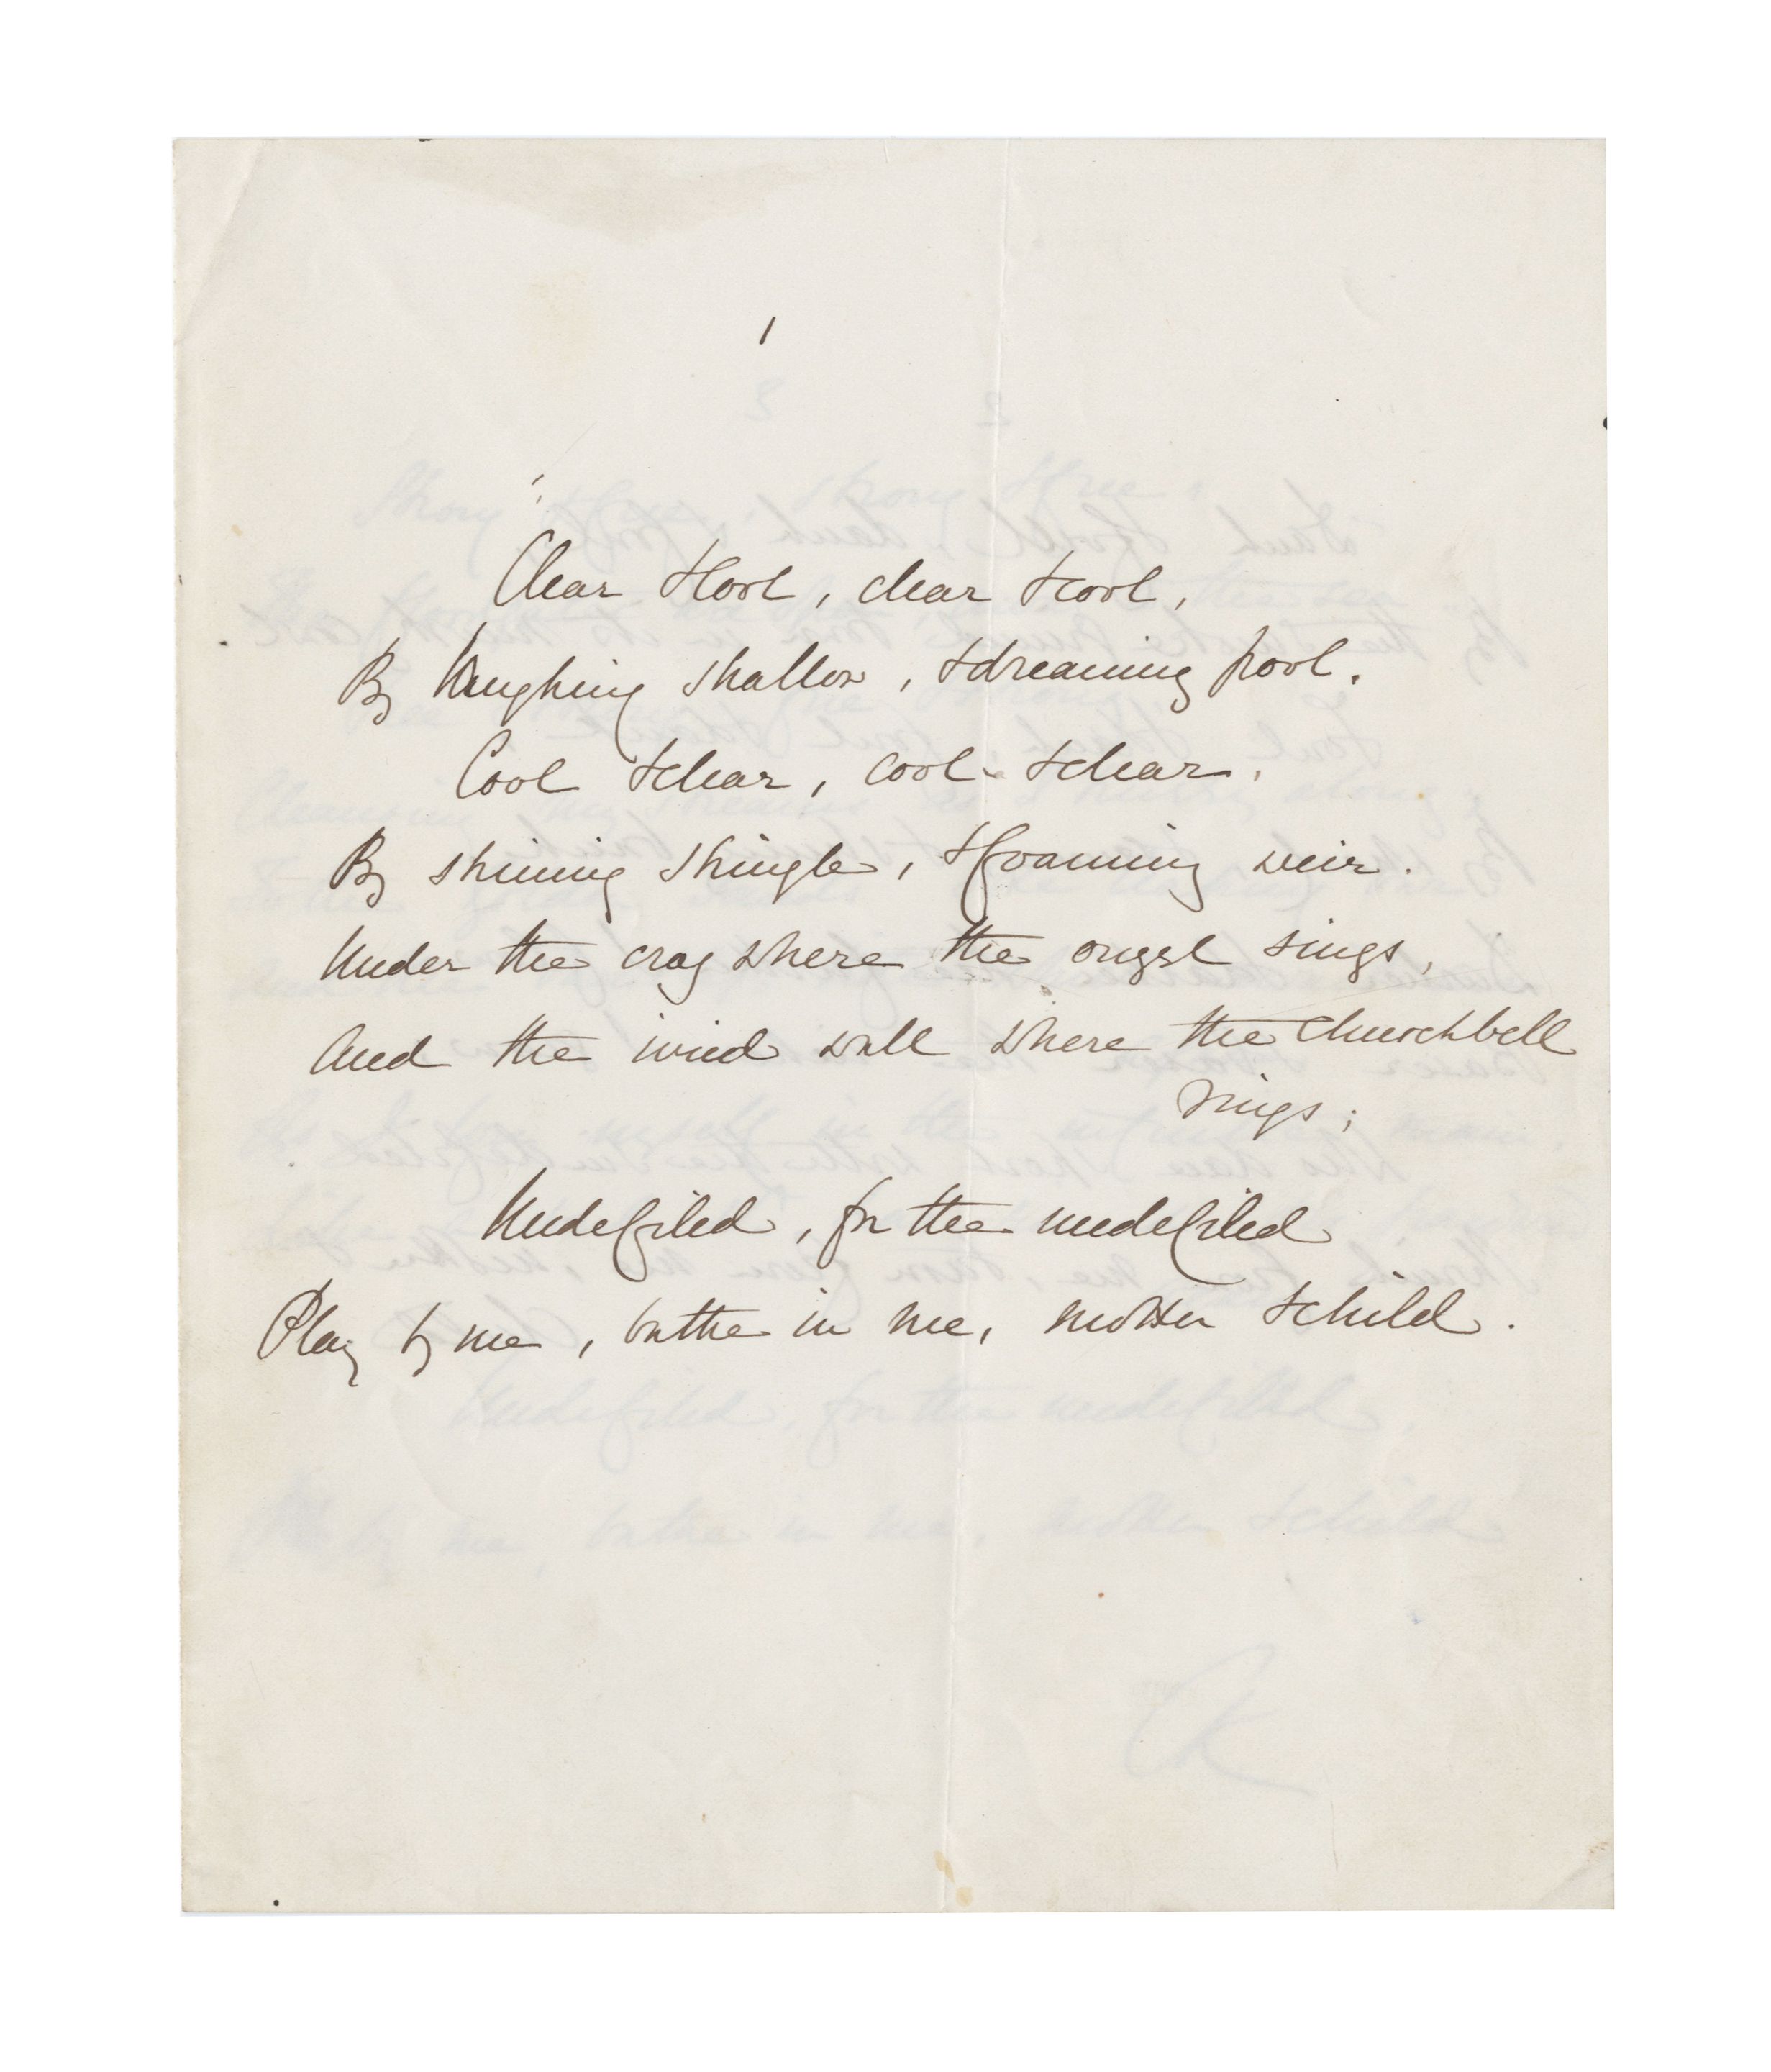 1
Clear & cool, clear & cool,
By laughing shallow, & dreaming pool.
Cool & clear, cool & clear,
By shining shingle, & foaming weir.
Under the crag where the ouzel sings,
And the ivied wall where the churchbell
rings;
Undefiled, for the undefiled
Play by me, bathe in me, mother & child.